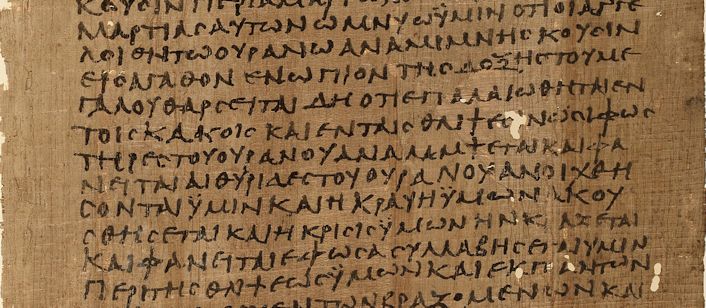 ΚΟΥCΙΝΠΕΡΙ
ΜΑΡΤΙΑCΑΥΤΩΝΩΜΝΥΩΫΜΙΝΟΤΙΟΙΑΓΓΕ
ΛΟΙΗΝΤΩΟΥΡΑΝΩΑΝΑΜΙΜΝΗCΚΟΥCΙΝ
ΕΙCΑΓΑΘΟΝΕΝΩΠΙΟΝΤΗCΔΟΞΗCΤΟΥΜΕ
ΓΑΛΟΥΘΑΡCΕΙΤΑΙΔΗΟΤΙΕΠΑΛΑΙΩΘΗΤΑΙΕΝ
ΤΟΙCΚΑΚΟΙCΚΑΙΕΝΤΑΙCΘΛΙΨΕCΙΝΩCΙΦΩC
ΤΗΡΕCΤΟΥΟΥΡΑΝΟΥΑΝΑΛΑΜΨΕΤΑΙΚΑΙΦΑ
ΝΕΙΤΑΙΑΙΘΥΡΙΔΕCΤΟΥΟΥΡΑΝΟΥΑΝΟΙΧΘΗ
CΟΝΤΑΙΫΜΙΝΚΑΙΗΚΡΑΥΓΗΫΜΩΝΑΚΟΥ
CΘΗCΕΤΑΙΚΑΙΗΚΡΙCΙCΫΜΩΝΗΝΚΡΑΖΕΤΑΙ
ΚΑΙΦΑΝΕΙΤΑΙΕΦΩCΑCΥΛΛΑΒΗCΕΤΑΙΫΜΙΝ
ΠΕΡΙΤΗCΘΛΙΨΕΩCΫΜΩΝΚΑΙΕΚΠΑΝΤΩΝ
ΤΩΝΒΙΑΖΟΜΕΝΩΝΚΑΙ